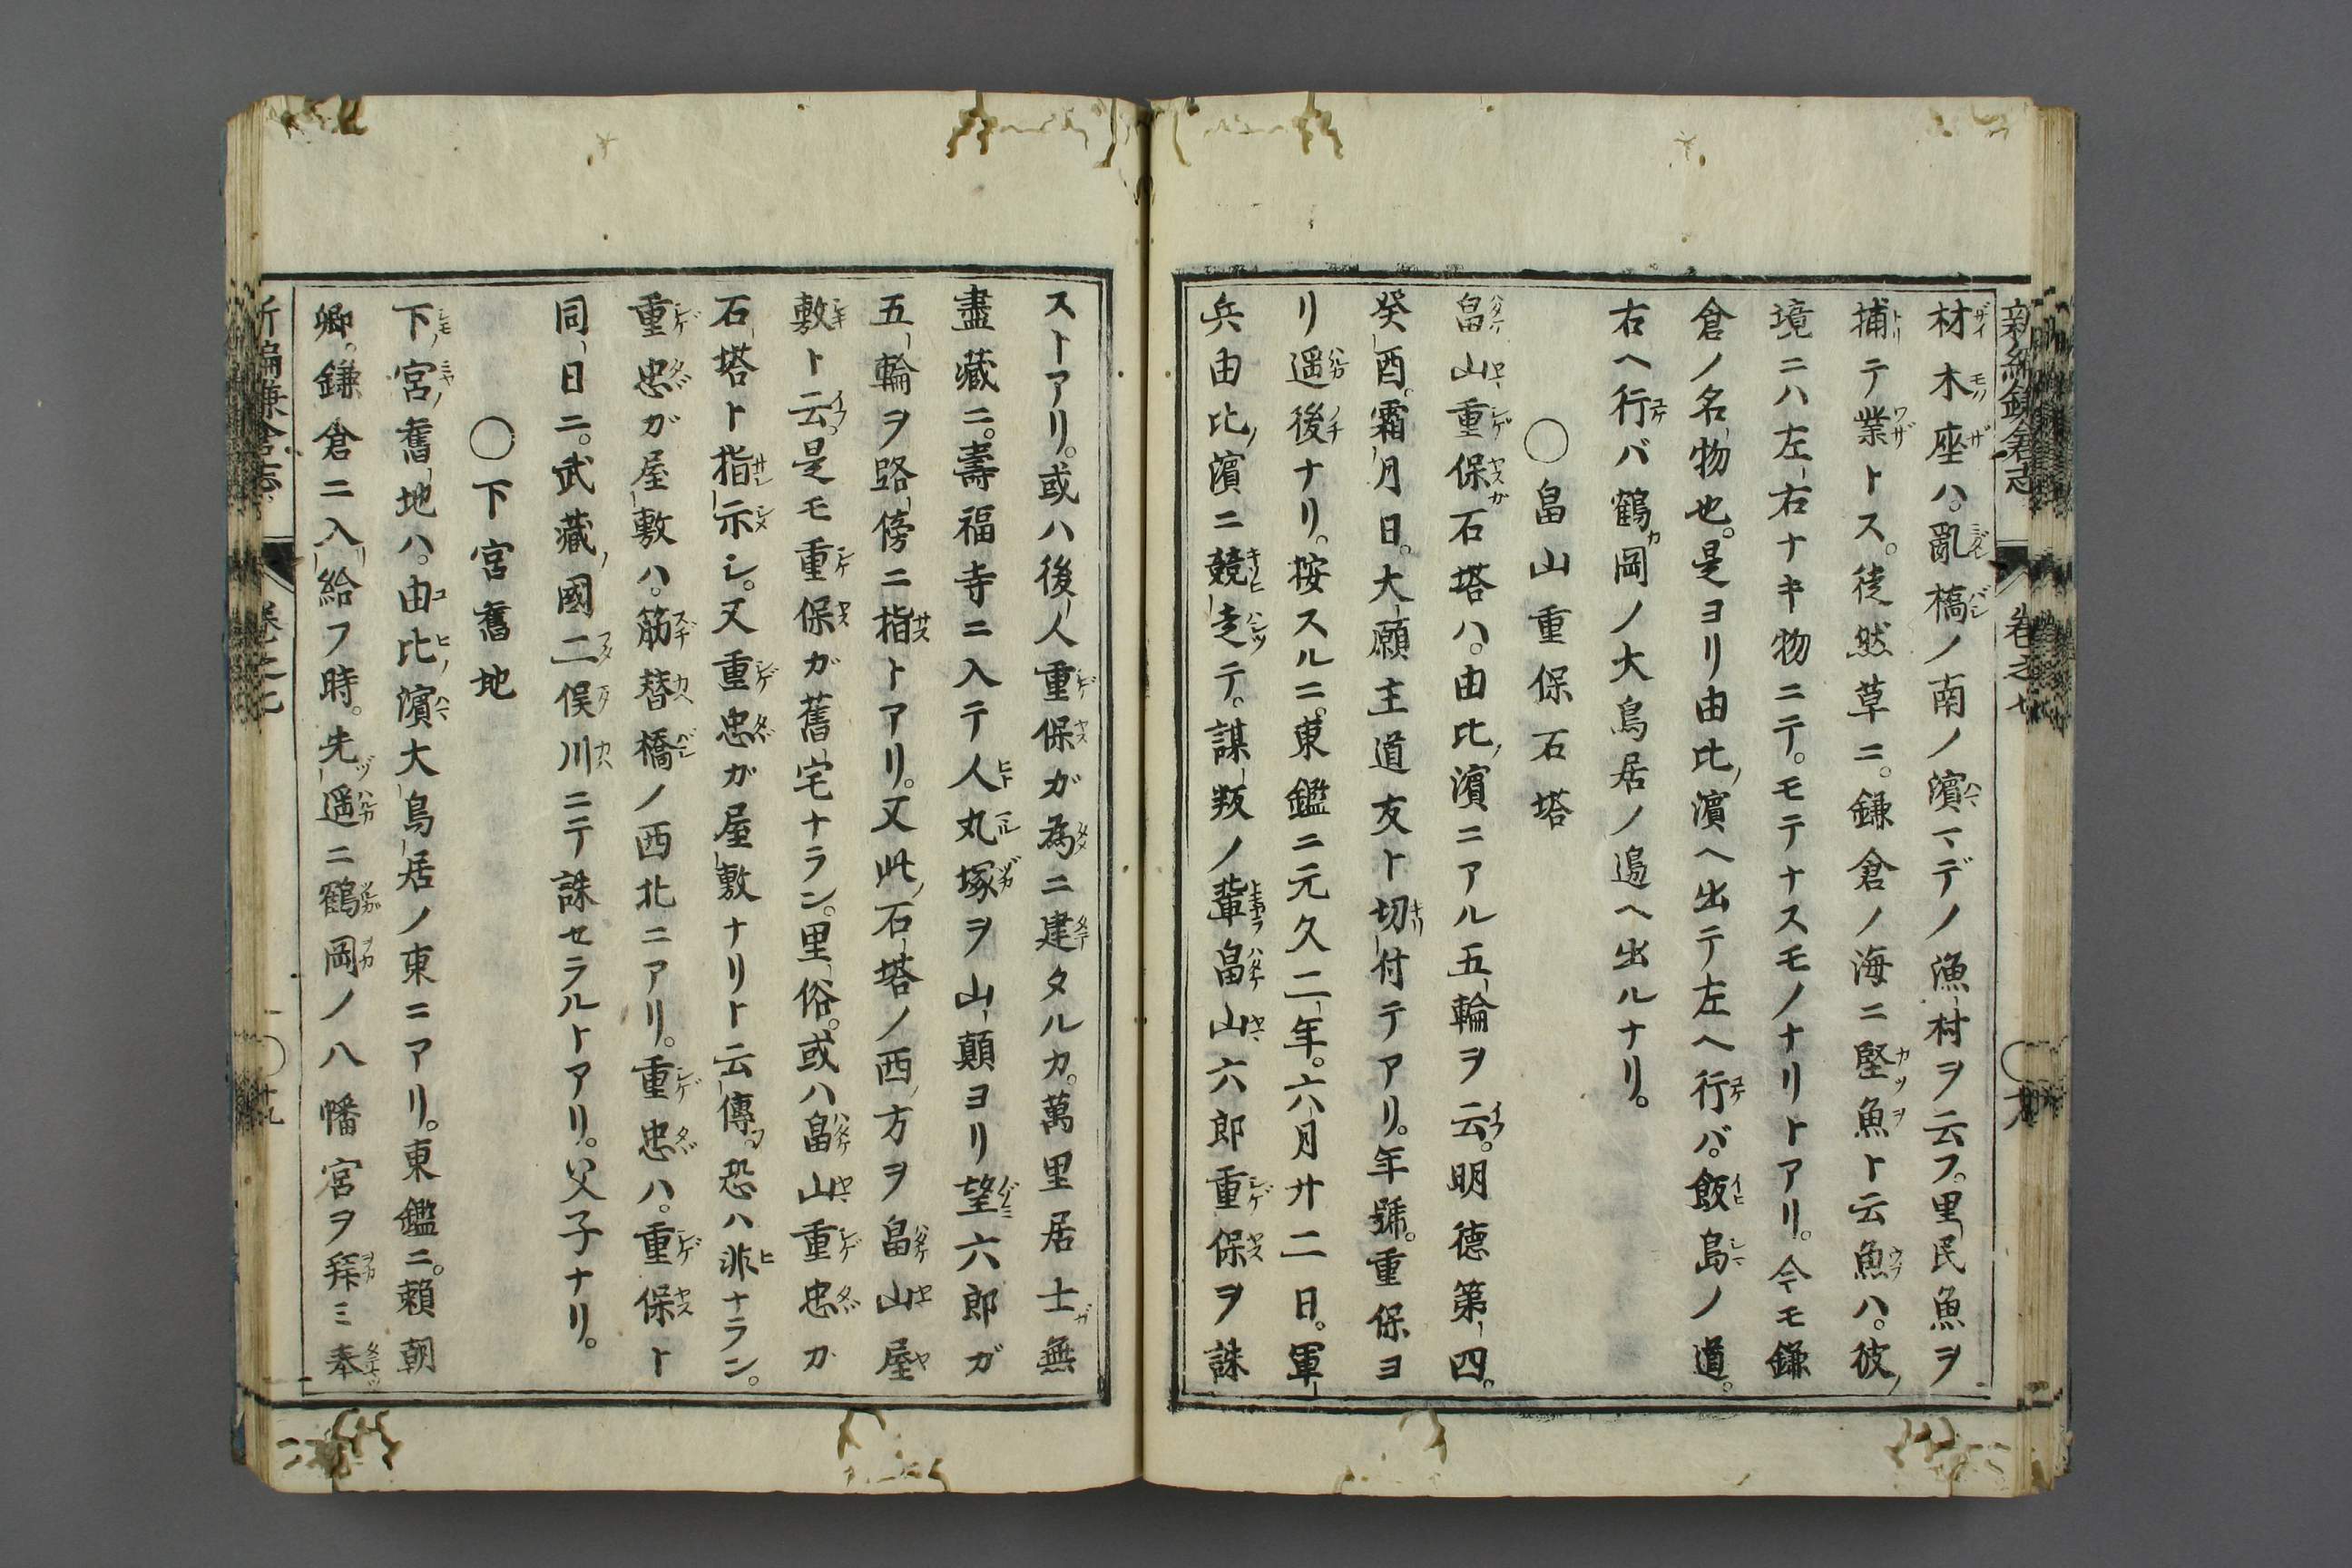 新編鎌倉志
卷之七
材木座ハ。亂橋ノ南ノ濱マデノ漁村ヲ云フ。里民魚ヲ
捕テ業トス。徒然草ニ。鎌倉ノ海ニ堅魚ト云魚ハ。彼ノ
境ニハ左右ナキ物ニテ。モテナスモノナリトアリ。今モ鎌
倉ノ名物也。是ヨリ由比ノ濱ヘ出テ左ヘ行バ。飯島ノ道。
右ヘ行バ鶴岡ノ大鳥居ノ邉ヘ出ルナリ。
〇畠山重保石塔
畠山重保ガ石塔ハ。由比ノ濱ニアル五輪ヲ云。明德第四。
癸酉。霜月日。大願主道友ト切付テアリ。年號。重保ヨ
リ遥後ナリ。按スルニ。東鑑ニ元久二年。六月廿二日。軍
兵由比ノ濱ニ競走テ。謀叛ノ輩畠山六郎重保ヲ誅
ストアリ。或ハ後人重保ガ為ニ建タルカ。萬里居士ガ無
盡藏ニ。壽福寺ニ入テ人丸塚ヲ山顛ヨリ望六郎ガ
五輪ヲ路傍ニ指トアリ。又此ノ石塔ノ西ノ方ヲ畠山屋
敷ト云。是モ重保ガ舊宅ナラン。里俗。或ハ畠山重忠カ
石塔ト指示シ。又重忠ガ屋敷ナリト云傳フ。恐ハ非ナラン。
重忠ガ屋敷ハ。筋替橋ノ西北ニアリ。重忠ハ。重保ト
同日ニ。武藏ノ國二俣川ニテ誅セラルトアリ。父子ナリ。
〇下宮舊地
下ノ宮ノ舊地ハ。由比ノ濱大鳥居ノ東ニアリ。東鑑ニ。賴朝
卿。鎌倉ニ入リ給フ時。先ヅ遥ニ鶴岡ノ八幡宮ヲ拜ミ奉
新編鎌倉志
卷之七